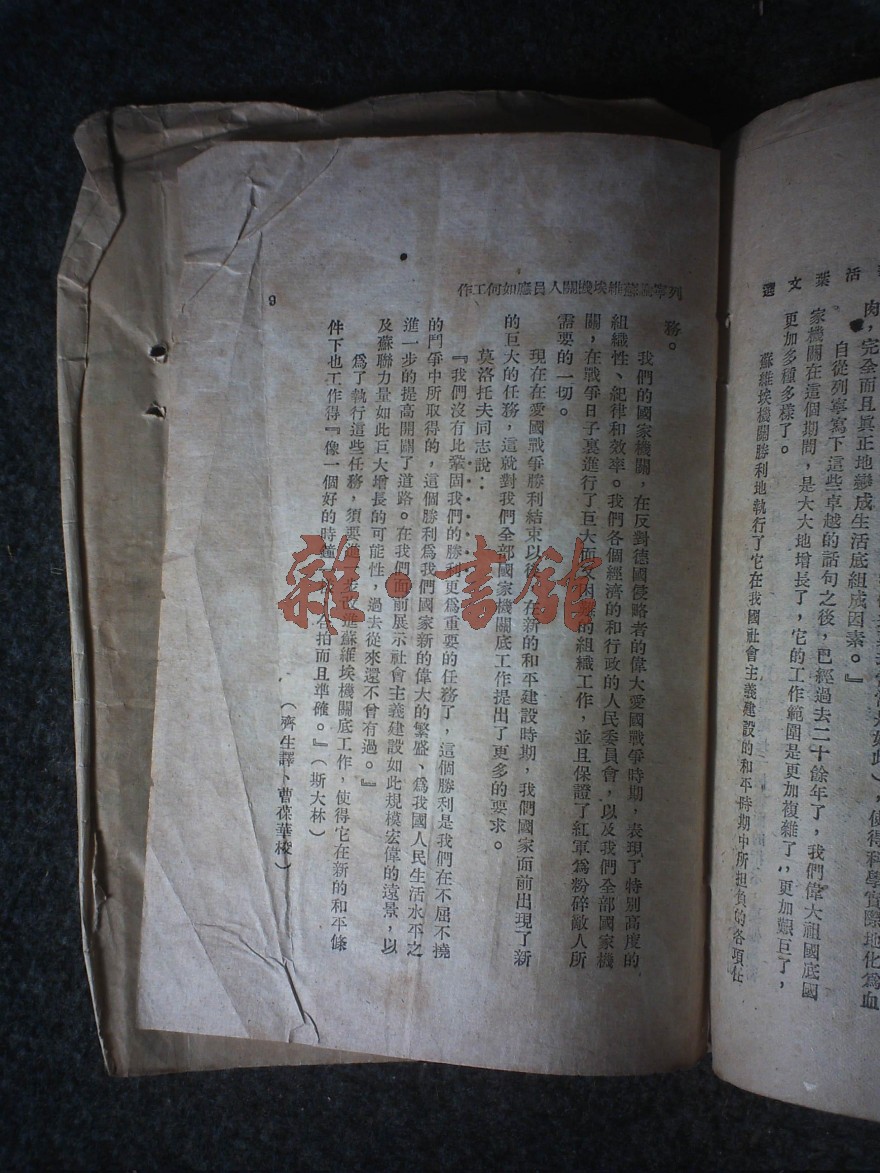 活葉文選
肉，完全而且眞正地變成生活底組成因素。』
自從列寧寫下這些卓越的話句之後，已經過去二十餘年了，我們偉大祖國底國
家機關在這個期間，是大大地增長了，它的工作範圍是更加複雜了，更加艱巨了，
更加多種多樣了。
蘇維埃機關勝利地執行了它在我國社會主義建設的和平時期中所担負的各項任
列寧論蘇維埃機關人員應如何工作
務。
我們的國家機關，在反對德國侵略者的偉大愛國戰爭時期，表現了特別高度的
組織性、紀律和效率。我們各個經濟的和行政的人民委員會，以及我們全部國家機
關，在戰爭日子裏進行了巨大而又的組織工作，並且保證了紅軍爲粉碎敵人所
需要的一切。
現在在愛國戰爭勝利結束以後，在新的和平建設時期，我們國家面前出現了新
的巨大的任務，這就對我們全部國家機關底工作提出了更多的要求。
莫洛托夫同志說：
『我們沒有比鞏固我們的勝利更爲重要的任務了，這個勝利是我們在不屈不撓
的鬥爭中所取得的，這個勝利爲我們國家新的偉大的繁盛、爲我國人民生活水平之
進一步的提高開闢了道路。在我們面前展示社會主義建設如此規模宏偉的遠景，以
及蘇聯力量如此巨大增長的可能性，過去從來還不曾有過。』
爲了執行這些任務，須要改進蘇維埃機關底工作，使得它在新的和平條
件下也工作得『像一個好的時鐘合拍而且準確。』（斯大林）
（齊生譯、曹葆華校）
9
雜·書館